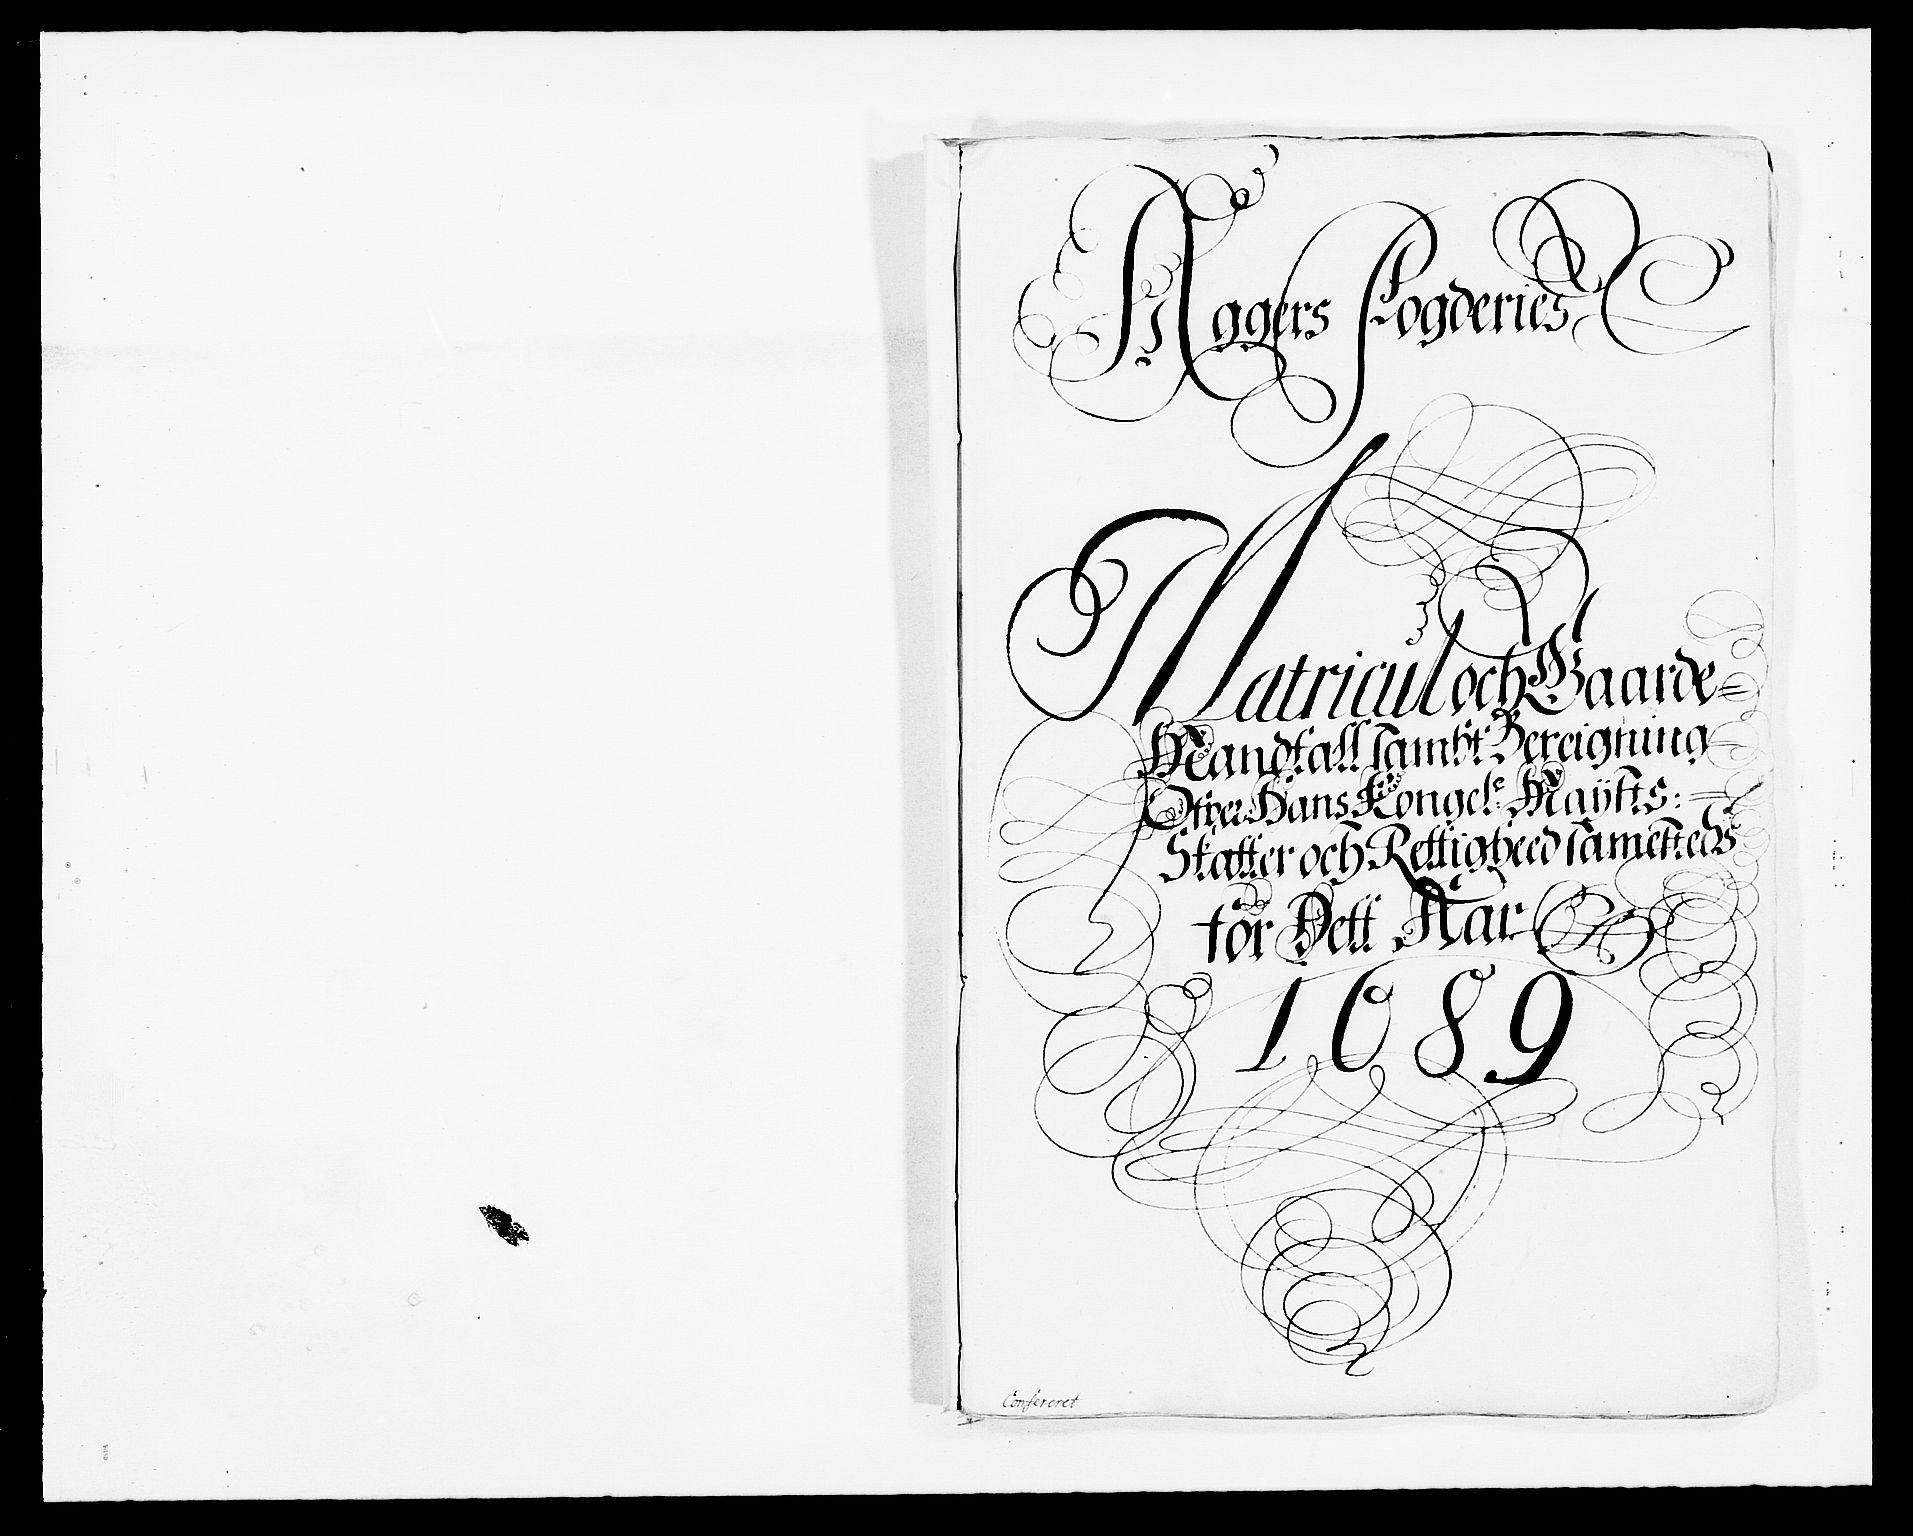 Aggers Fogderies
Matricul och Gaarde=
Mandtall sambt Bereigning
Ofver Hans Kongel: Mayts:
Skatter och Rettigheed sameteds
for Dett Aar
1689
Confereret